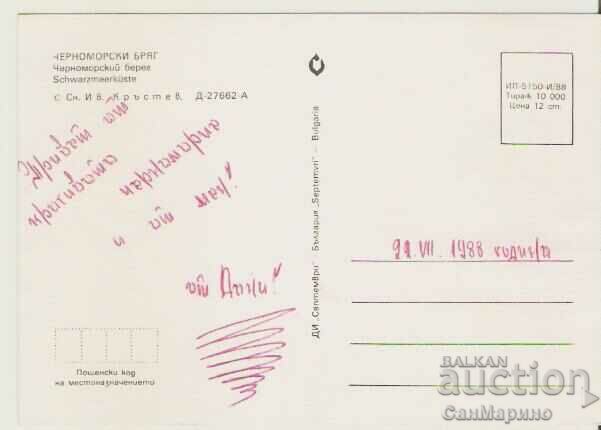 ЧЕРНОМОРСКИ БРЯГ
Черноморский берег
Schwarzmeerküste
с. Сн. Ив. Кръстев, Д-27662-А
Привет от
красивото черноморие
и от мен!
от Дани!
Пощенски код
на местоназначението
ДИ „Септември" — България „Septemvri" — Bulgaria
ИП-5150-И/88
Тираж 10 000
Цена 12 ст.
22. VII. 1988 година
BALKAN
auction
СанМарино